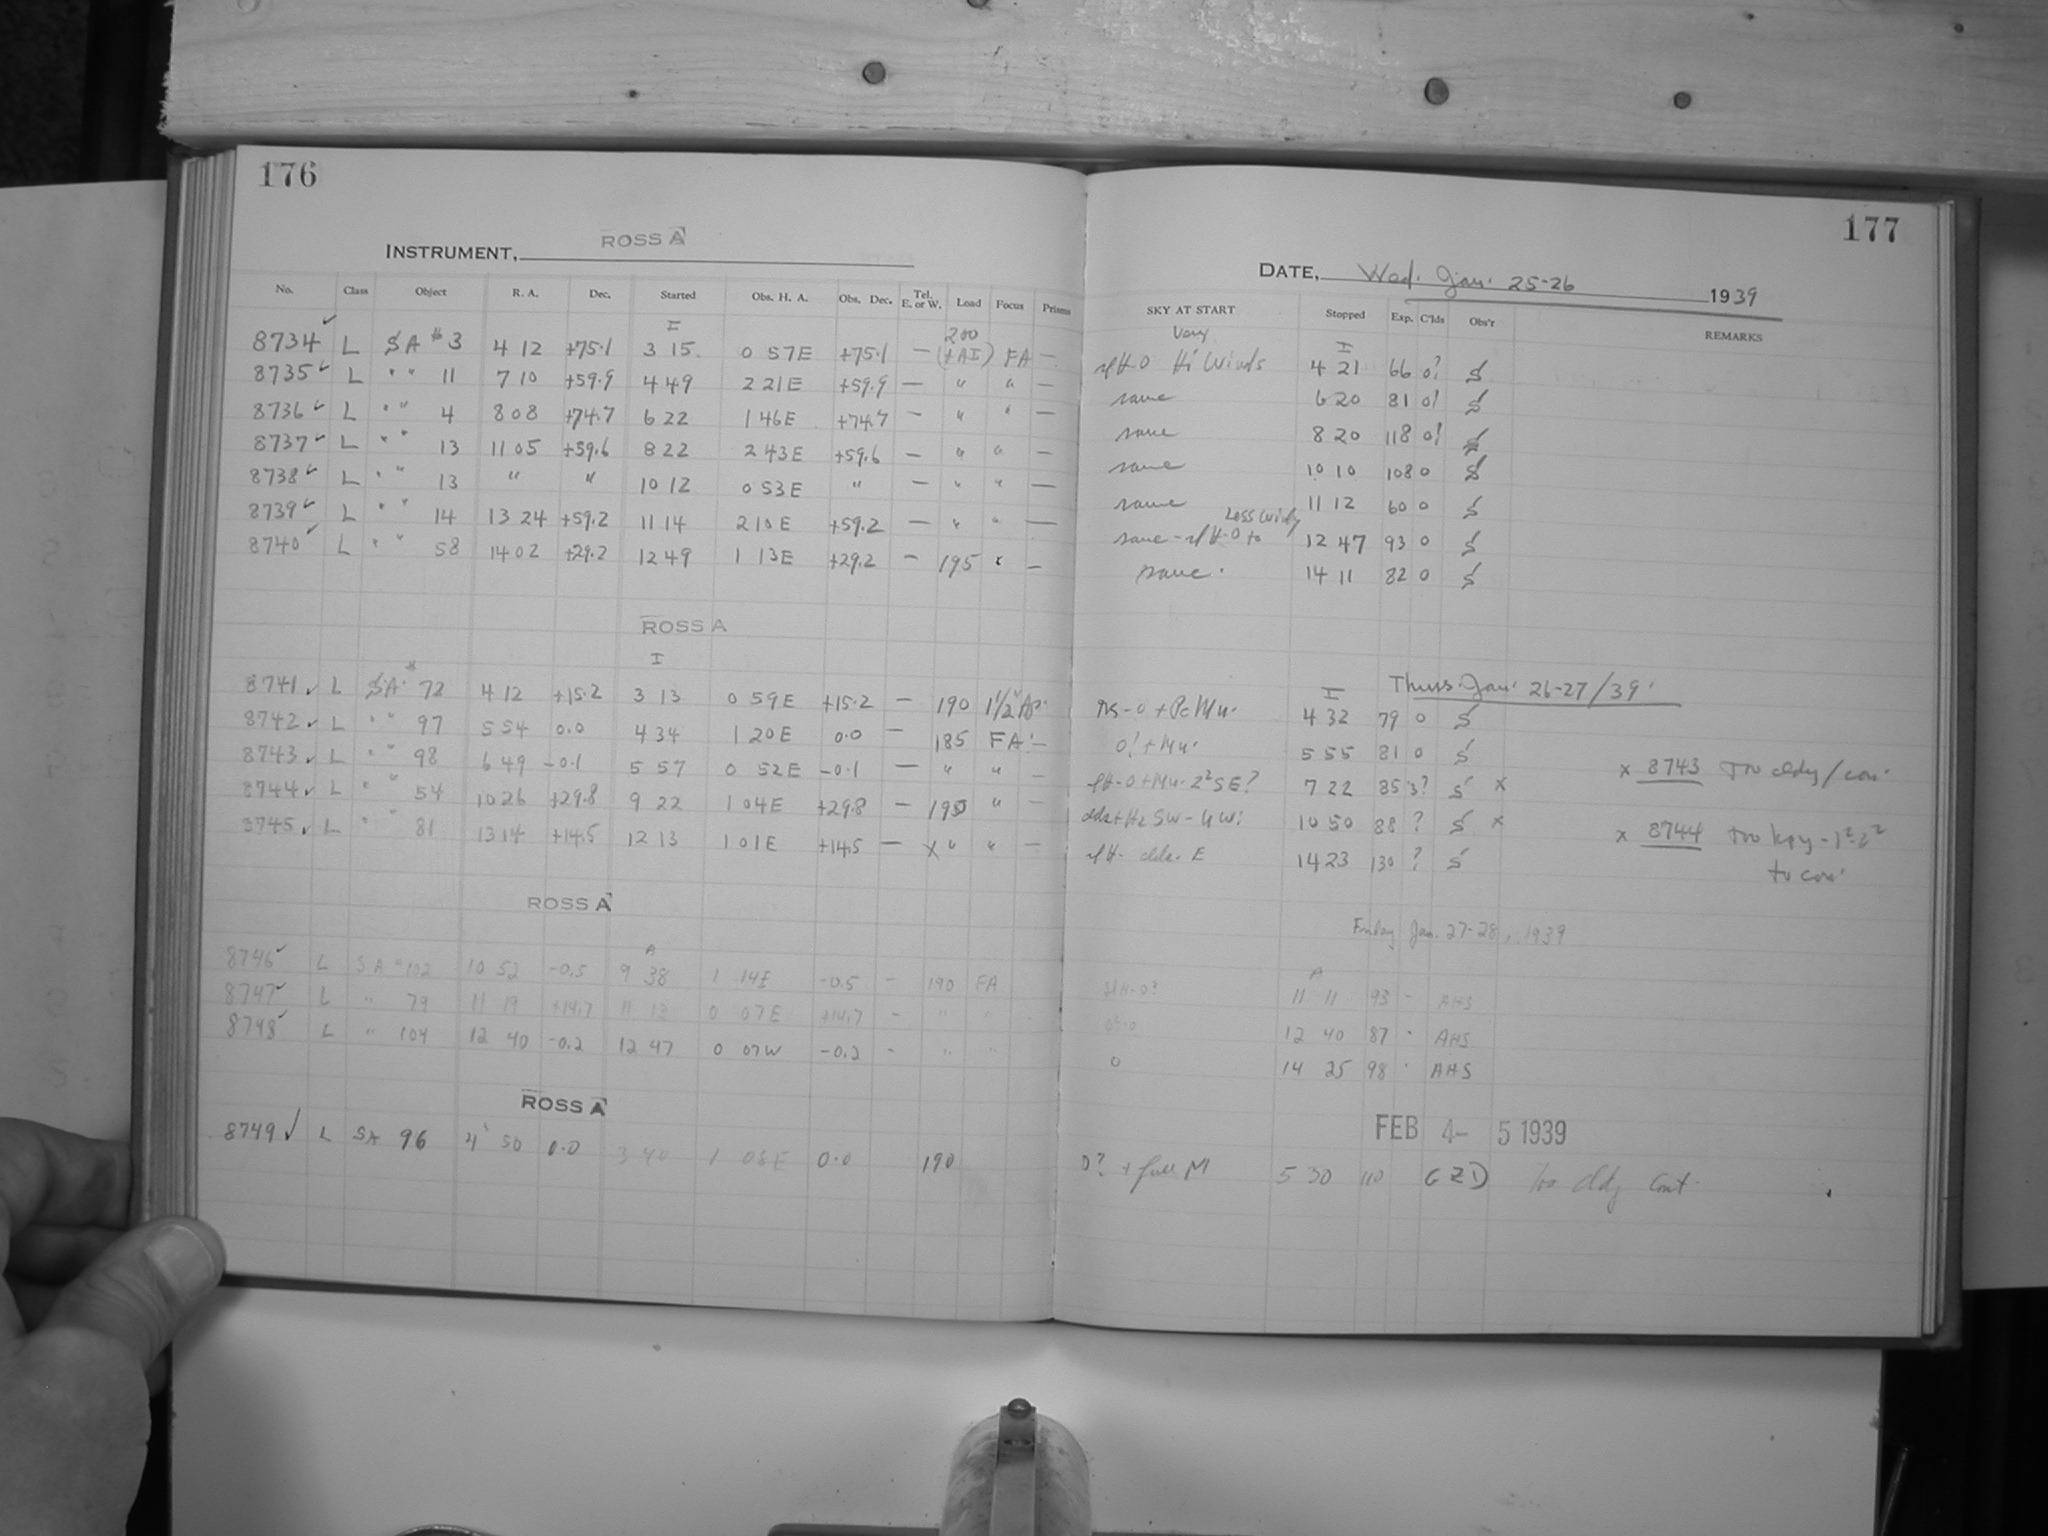 176
INSTRUMENT, ROSS A
No. Class Object R. A. Dec. Started Obs. H. A. Obs. Dec. Tel. E. or W. Load Focus Prisms
8734 ✓ L SA # 3 4 12 +75.1 I 3 15 0 57E +75.1 — 200 (+AI) FA —
8735 ✓ L " " 11 7 10 +59.9 4 49 2 21E +59.9 — " " —
8736 ✓ L " " 4 8 08 +74.7 6 22 1 46E +74.7 — " " —
8737 ✓ L " " 13 11 05 +59.6 8 22 2 43E +59.6 — " " —
8738 ✓ L " " 13 " " 10 12 0 53E " — " " —
8739 ✓ L " " 14 13 24 +59.2 11 14 2 10E +59.2 — " " —
8740 ✓ L " " 58 14 02 +29.2 12 49 1 13E +29.2 — 195 " —
ROSS A
8741 ✓ L SA # 72 4 12 +15.2 I 3 13 0 59E +15.2 — 190 1 1/2" Ap.
8742 ✓ L " " 97 5 54 0.0 4 34 1 20E 0.0 — 185 FA —
8743 ✓ L " " 98 6 49 -0.1 5 57 0 52E -0.1 — " " —
8744 ✓ L " " 54 10 26 +29.8 9 22 1 04E +29.8 — 190 " —
8745 ✓ L " " 81 13 14 +14.5 12 13 1 01E +14.5 — x " " —
ROSS A
8746 ✓ L SA # 102 10 52 -0.5 A 9 38 1 14E -0.5 - 190 FA
8747 ✓ L " 79 11 19 +14.7 11 13 0 07E +14.7 - " "
8748 ✓ L " 104 12 40 -0.2 12 47 0 07W -0.2 - " "
ROSS A
8749 ✓ L SA 96 4 50 0.0 3 40 1 08E 0.0 190
177
DATE, Wed. Jan. 25-26 1939
SKY AT START Stopped Exp. C'lds Obs'r REMARKS
Very Hi Winds I 4 21 66 0? S
same 6 20 81 0! S
same 8 20 118 0! S
same 10 10 108 0 S
same 11 12 60 0 S
same - to Less windy 12 47 93 0 S
same. 14 11 82 0 S
Thurs. Jan. 26-27/39.
I 4 32 79 0 S
0! + Mu. 5 55 81 0 S
7 22 85 3? S x x 8743 Too cldy/con.
10 50 88 ? S x x 8744 Too hzy - 1²-2²
E 14 23 130 ? S to con.
Friday Jan. 27-28, 1939
A 11 11 93 - AHS
12 40 87 - AHS
0 14 25 98 - AHS
FEB 4- 5 1939
0? + full M 5 30 110 GZD Too cldy Cont.